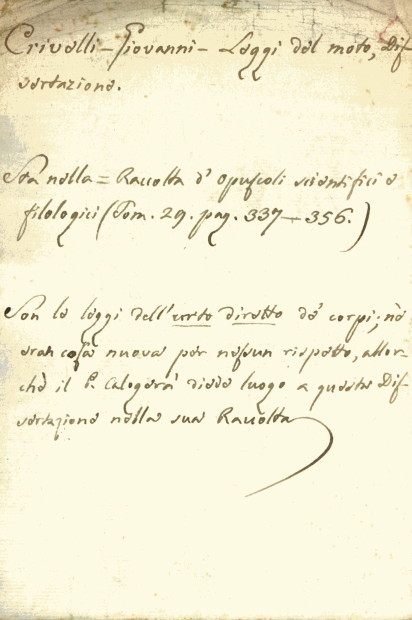 Crivelli – Giovanni – Leggi del moto, Dis-
sertazione.
Sta nella = Raccolta d' Opuscoli scientifici e
filologici (Tom. 29. pag. 337 – 356.)
Son le leggi dell'urto diretto de' corpi; nè
eran cosa nuova per nessun rispetto, allor-
chè il P. Calogerà diede luogo a questa Dis-
sertazione nella sua Raccolta